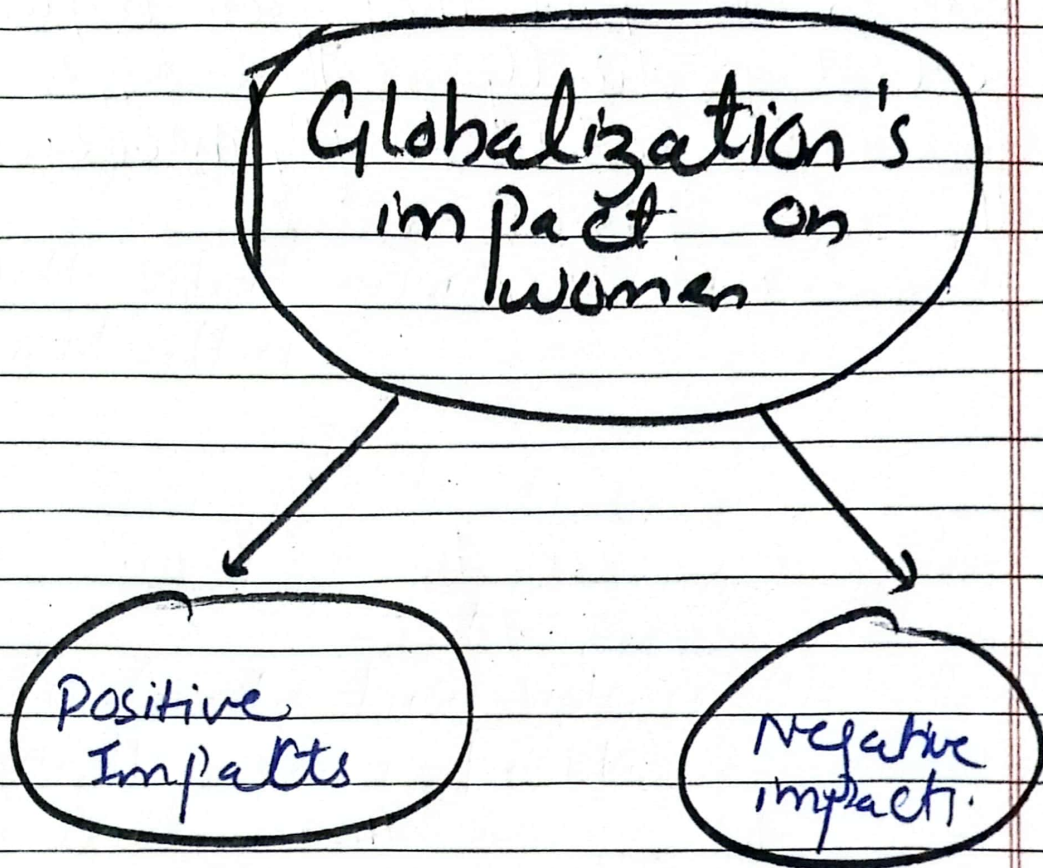 Globalization's
impact on
women
Positive
Impacts
Negative
impacts.